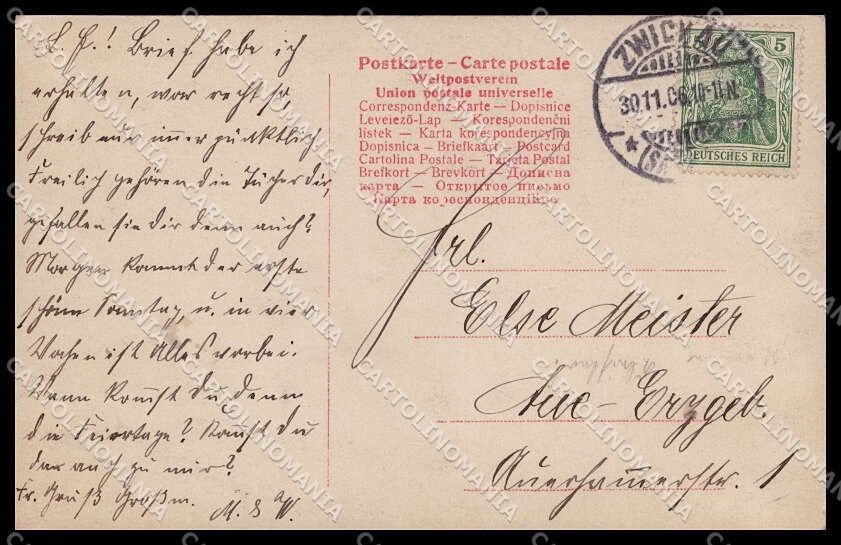 L. E.! Brief habe ich
erhalten, war recht so,
schreib nur im̅er pünktlich
Freilich gehören die Tücher dir,
gefallen sie dir denn auch?
Morgen kommt der erste
schöne Sonntag, u. in vier
Wochen ist Alles vorbei.
Wann kom̅st Du denn
die Feiertage? Kom̅st Du
dan auch zu mir?
Fr. Gruß Großm. M. & W.
Postkarte – Carte postale
Weltpostverein
Union postale universelle
Correspondenz-Karte — Dopisnice
Levelező-Lap — Korespondenční
lístek — Karta korespondencyjna
Dopisnica — Briefkaart — Postcard
Cartolina Postale — Tarjeta Postal
Brefkort — Brevkort — Дописна
карта — Открытое письмо
Карта кореспонденційна
ZWICKAU
30.11.06.10-11.N.
5
DEUTSCHES REICH
Frl.
Else Meister
Aue – Erzgeb.
Auerham̅erstr. 1
CARTOLINOMANIA